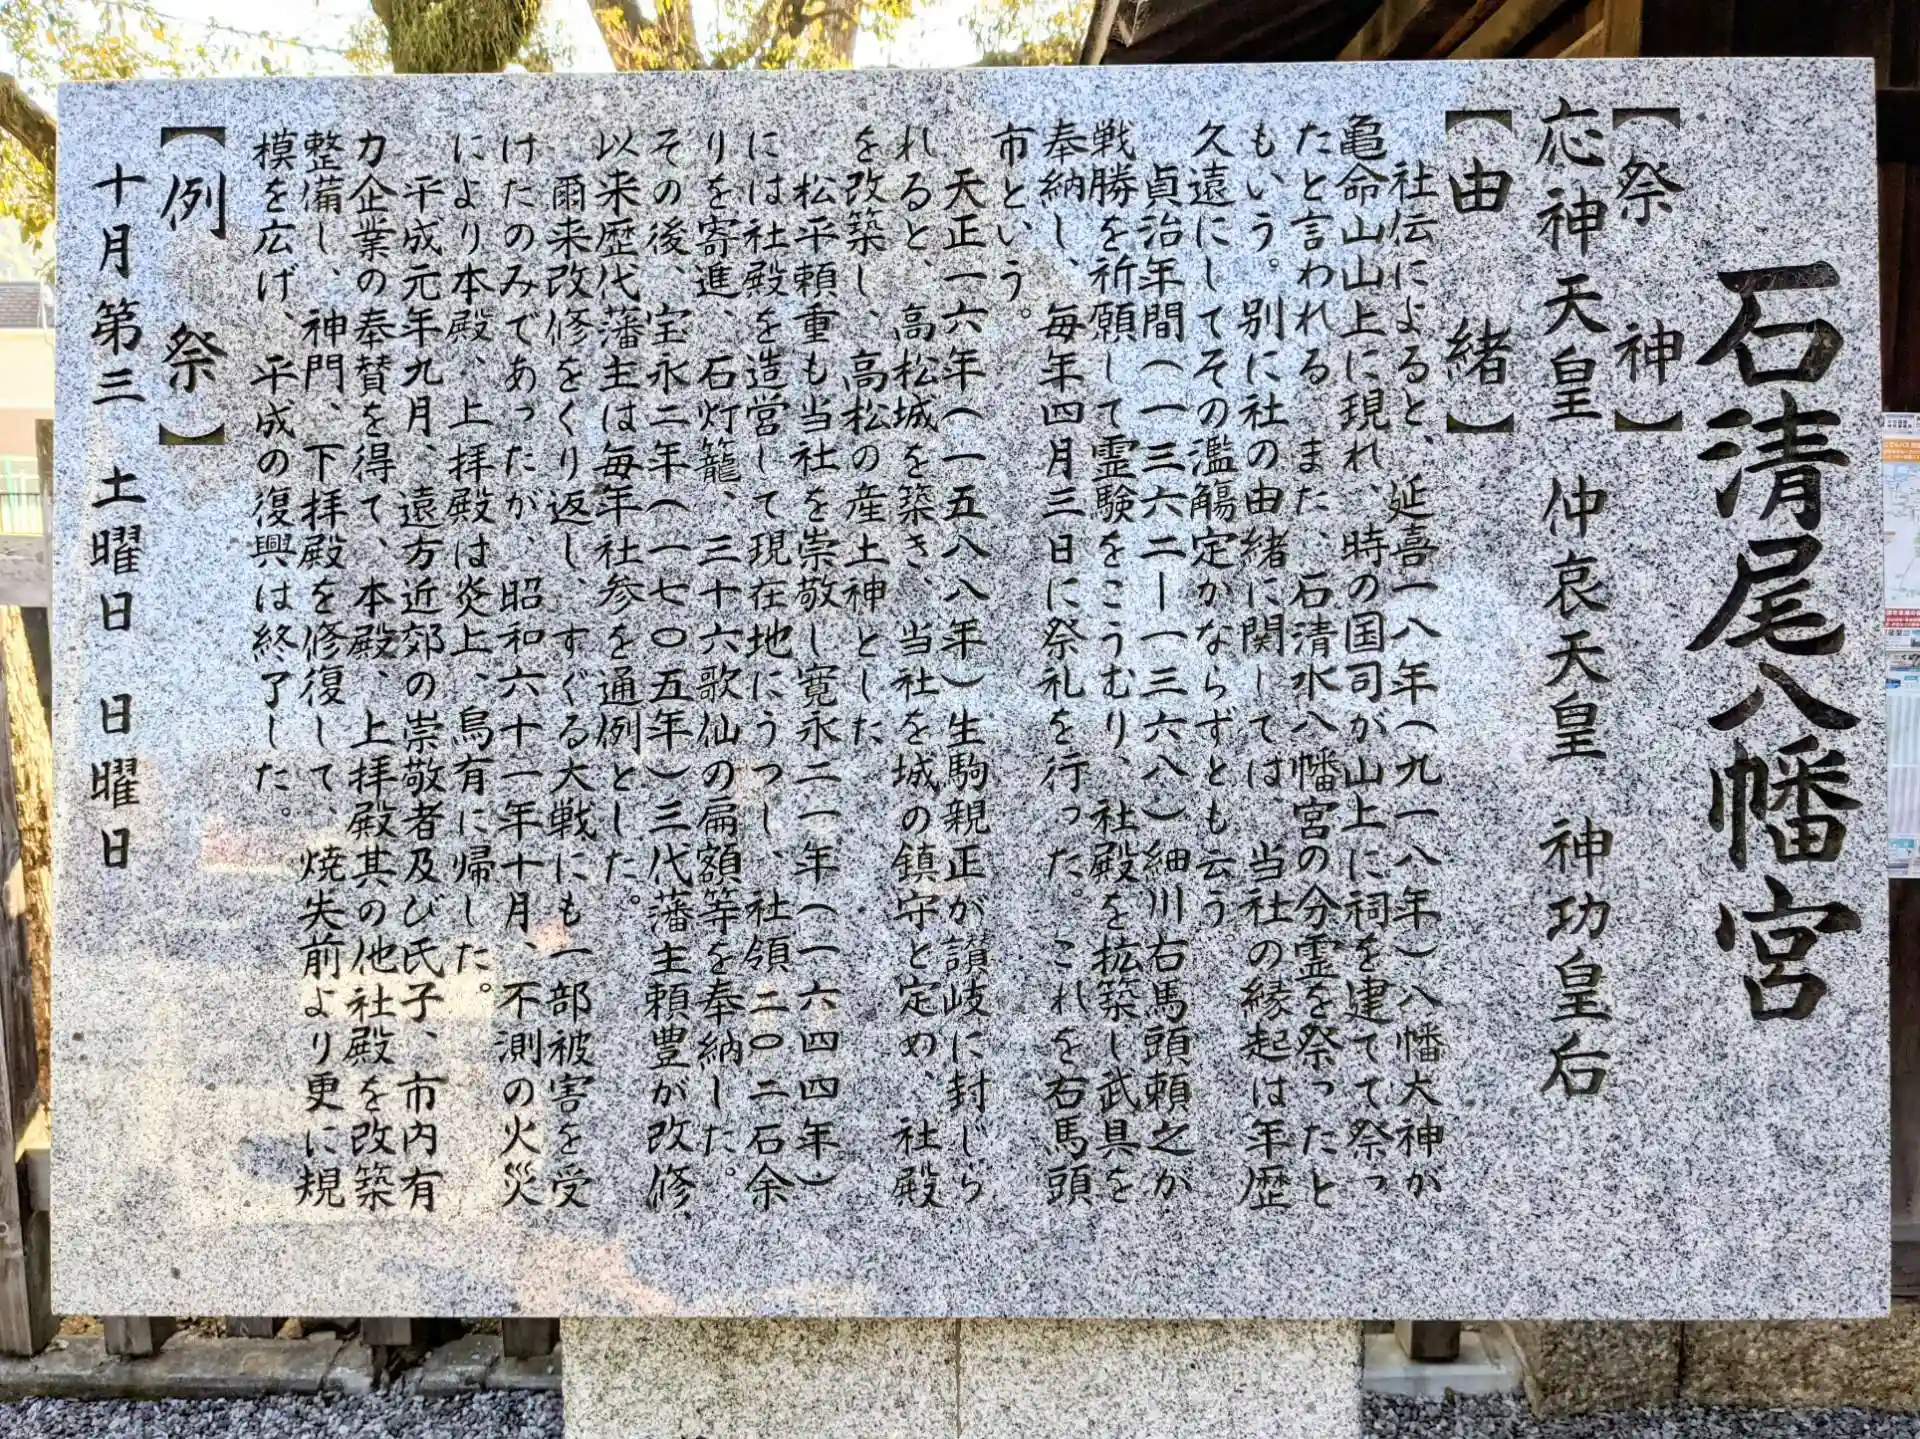 石清尾八幡宮
【祭神】
応神天皇 仲哀天皇 神功皇后
【由緒】
社伝によると、延喜一八年(九一八年)八幡大神が
亀命山山上に現れ、時の国司が山上に祠を建てて祭っ
たと言われる。また、石清水八幡宮の分霊を祭ったと
もいう。別に社の由緒に関しては、当社の縁起は年歴
久遠にしてその濫觴定かならずとも云う。
貞治年間(一三六二ー一三六八)細川右馬頭頼之が
戦勝を祈願して霊験をこうむり、社殿を拡築し武具を
奉納し、毎年四月三日に祭礼を行った。これを右馬頭
市という。
天正一六年(一五八八年)生駒親正が讃岐に封じら
れると、高松城を築き、当社を城の鎮守と定め、社殿
を改築し、高松の産土神とした
松平頼重も当社を崇敬し寛永二一年(一六四四年)
には社殿を造営して現在地にうつし、社領二〇二石余
りを寄進、石灯籠、三十六歌仙の扁額等を奉納した。
その後、宝永二年(一七〇五年)三代藩主頼豊が改修、
以来歴代藩主は毎年社参を通例とした。
爾来改修をくり返し、すぐる大戦にも一部被害を受
けたのみであったが、昭和六十一年十月、不測の火災
により本殿、上拝殿は炎上、烏有に帰した。
平成元年九月、遠方近郊の崇敬者及び氏子、市内有
力企業の奉賛を得て、本殿、上拝殿其の他社殿を改築
整備し、神門、下拝殿を修復して、焼失前より更に規
模を広げ、平成の復興は終了した。
【例祭】
十月第三 土曜日 日曜日